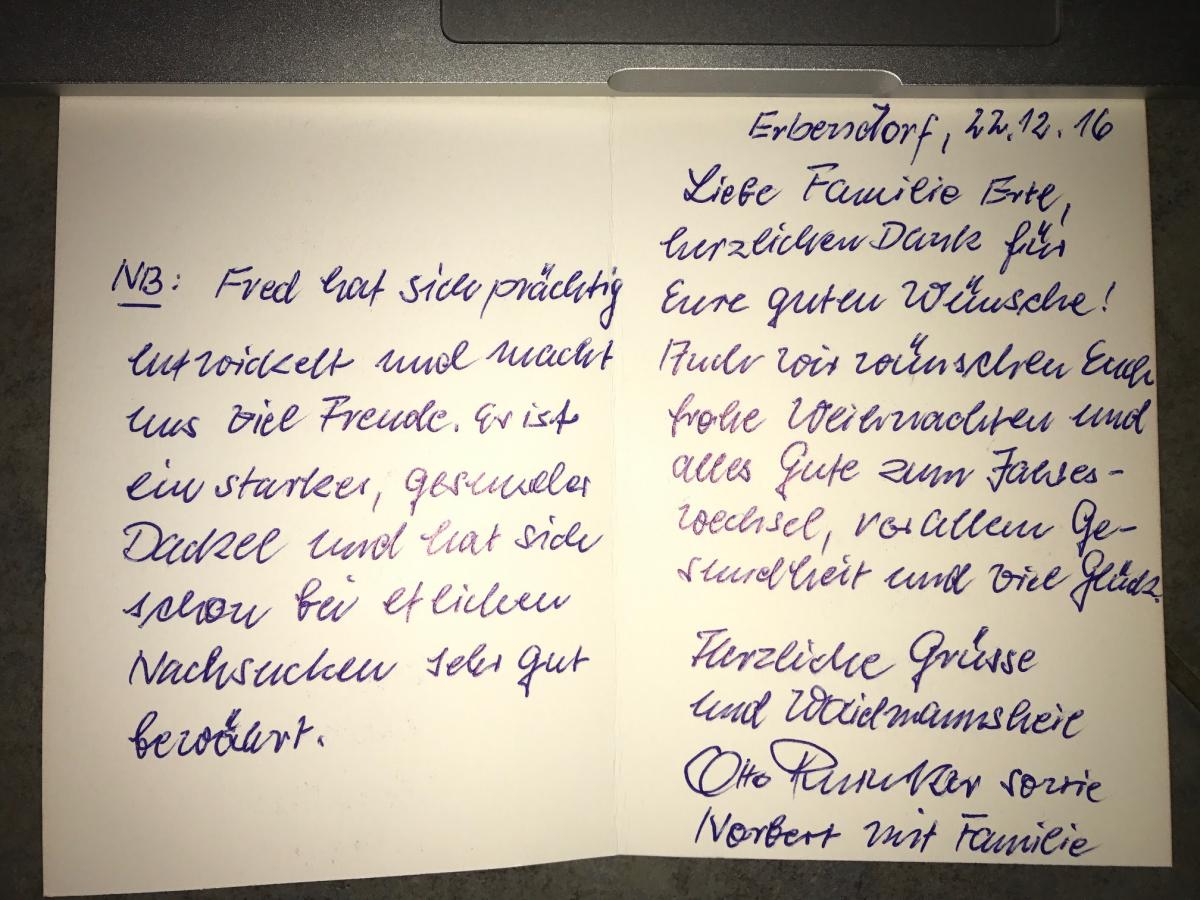 Erbersdorf, 22.12.16
Liebe Familie Ertl,
herzlichen Dank für
Eure guten Wünsche!
Auch wir wünschen Euch
frohe Weihnachten und
alles Gute zum Jahres-
wechsel, vor allem Ge-
sundheit und viel Glück.
Herzliche Grüsse
und Waidmannsheil
Otto sowie
Norbert mit Familie
NB: Fred hat sich prächtig
entwickelt und macht
uns viel Freude. Er ist
ein starker, gesunder
Dackel und hat sich
schon bei etlichen
Nachsuchen sehr gut
bewährt.